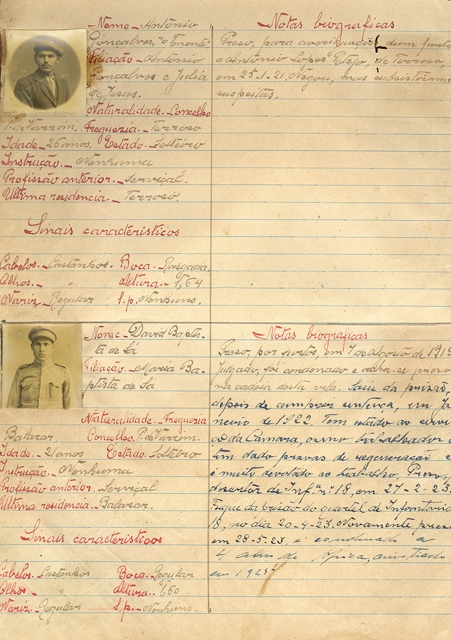 Nome - António
Gonçalves, "o Trento"
Filiação - António
Gonçalves e Julia
de Jesus.
Naturalidade - Concelho
P. Varzim. Freguezia - Terroso
Idade - 26 anos. Estado - Solteiro
Instrução - Nenhuma
Profissão anterior - Serviçal
Ultima residencia - Terroso.
Sinais caracteristicos
Cabelos - Castanhos Boca - Rasgada
Olhos - " Altura - 1,64
Nariz - Regular S.p. - Nenhuns.
Notas biograficas
Preso, para averiguações dum furto
a António Lopes de Terroso,
em 25-1-21. Negou, mas subsistem
suspeitas.
Nome - David Baptis-
ta de Sá
Filiação - Maria Ba-
ptista de Sá
Naturalidade - Freguezia
Balazar. Concelho - P. Varzim.
Idade - 21 anos Estado - Solteiro
Instrução - Nenhuma
Profissão anterior - Serviçal
Ultima residencia - Balazar.
Sinais caracteristicos
Cabelos - Castanhos Boca - Regular
Olhos - " Altura - 1,60
Nariz - Regular S.p. - Nenhuns
Notas biograficas
Preso, por furtos, em 7 de agosto de 191
Julgado, foi condenado e
na cadeia desta vila. Saiu da prisão
depois de cumprir a sentença, em Ja-
neiro de 1922. Tem estado ao servi
da Câmara, como trabalhador
tem dado provas de regeneração e
é muito devotado ao trabalho. Preso,
desertor de Infª nº 18, em 27-2-23.
Fugiu da prisão do quartel de Infantaria
18, no dia 20-4-23. Novamente preso
em 28-5-23. e condenado a
4 anos de Africa, amnistiado
em 1925